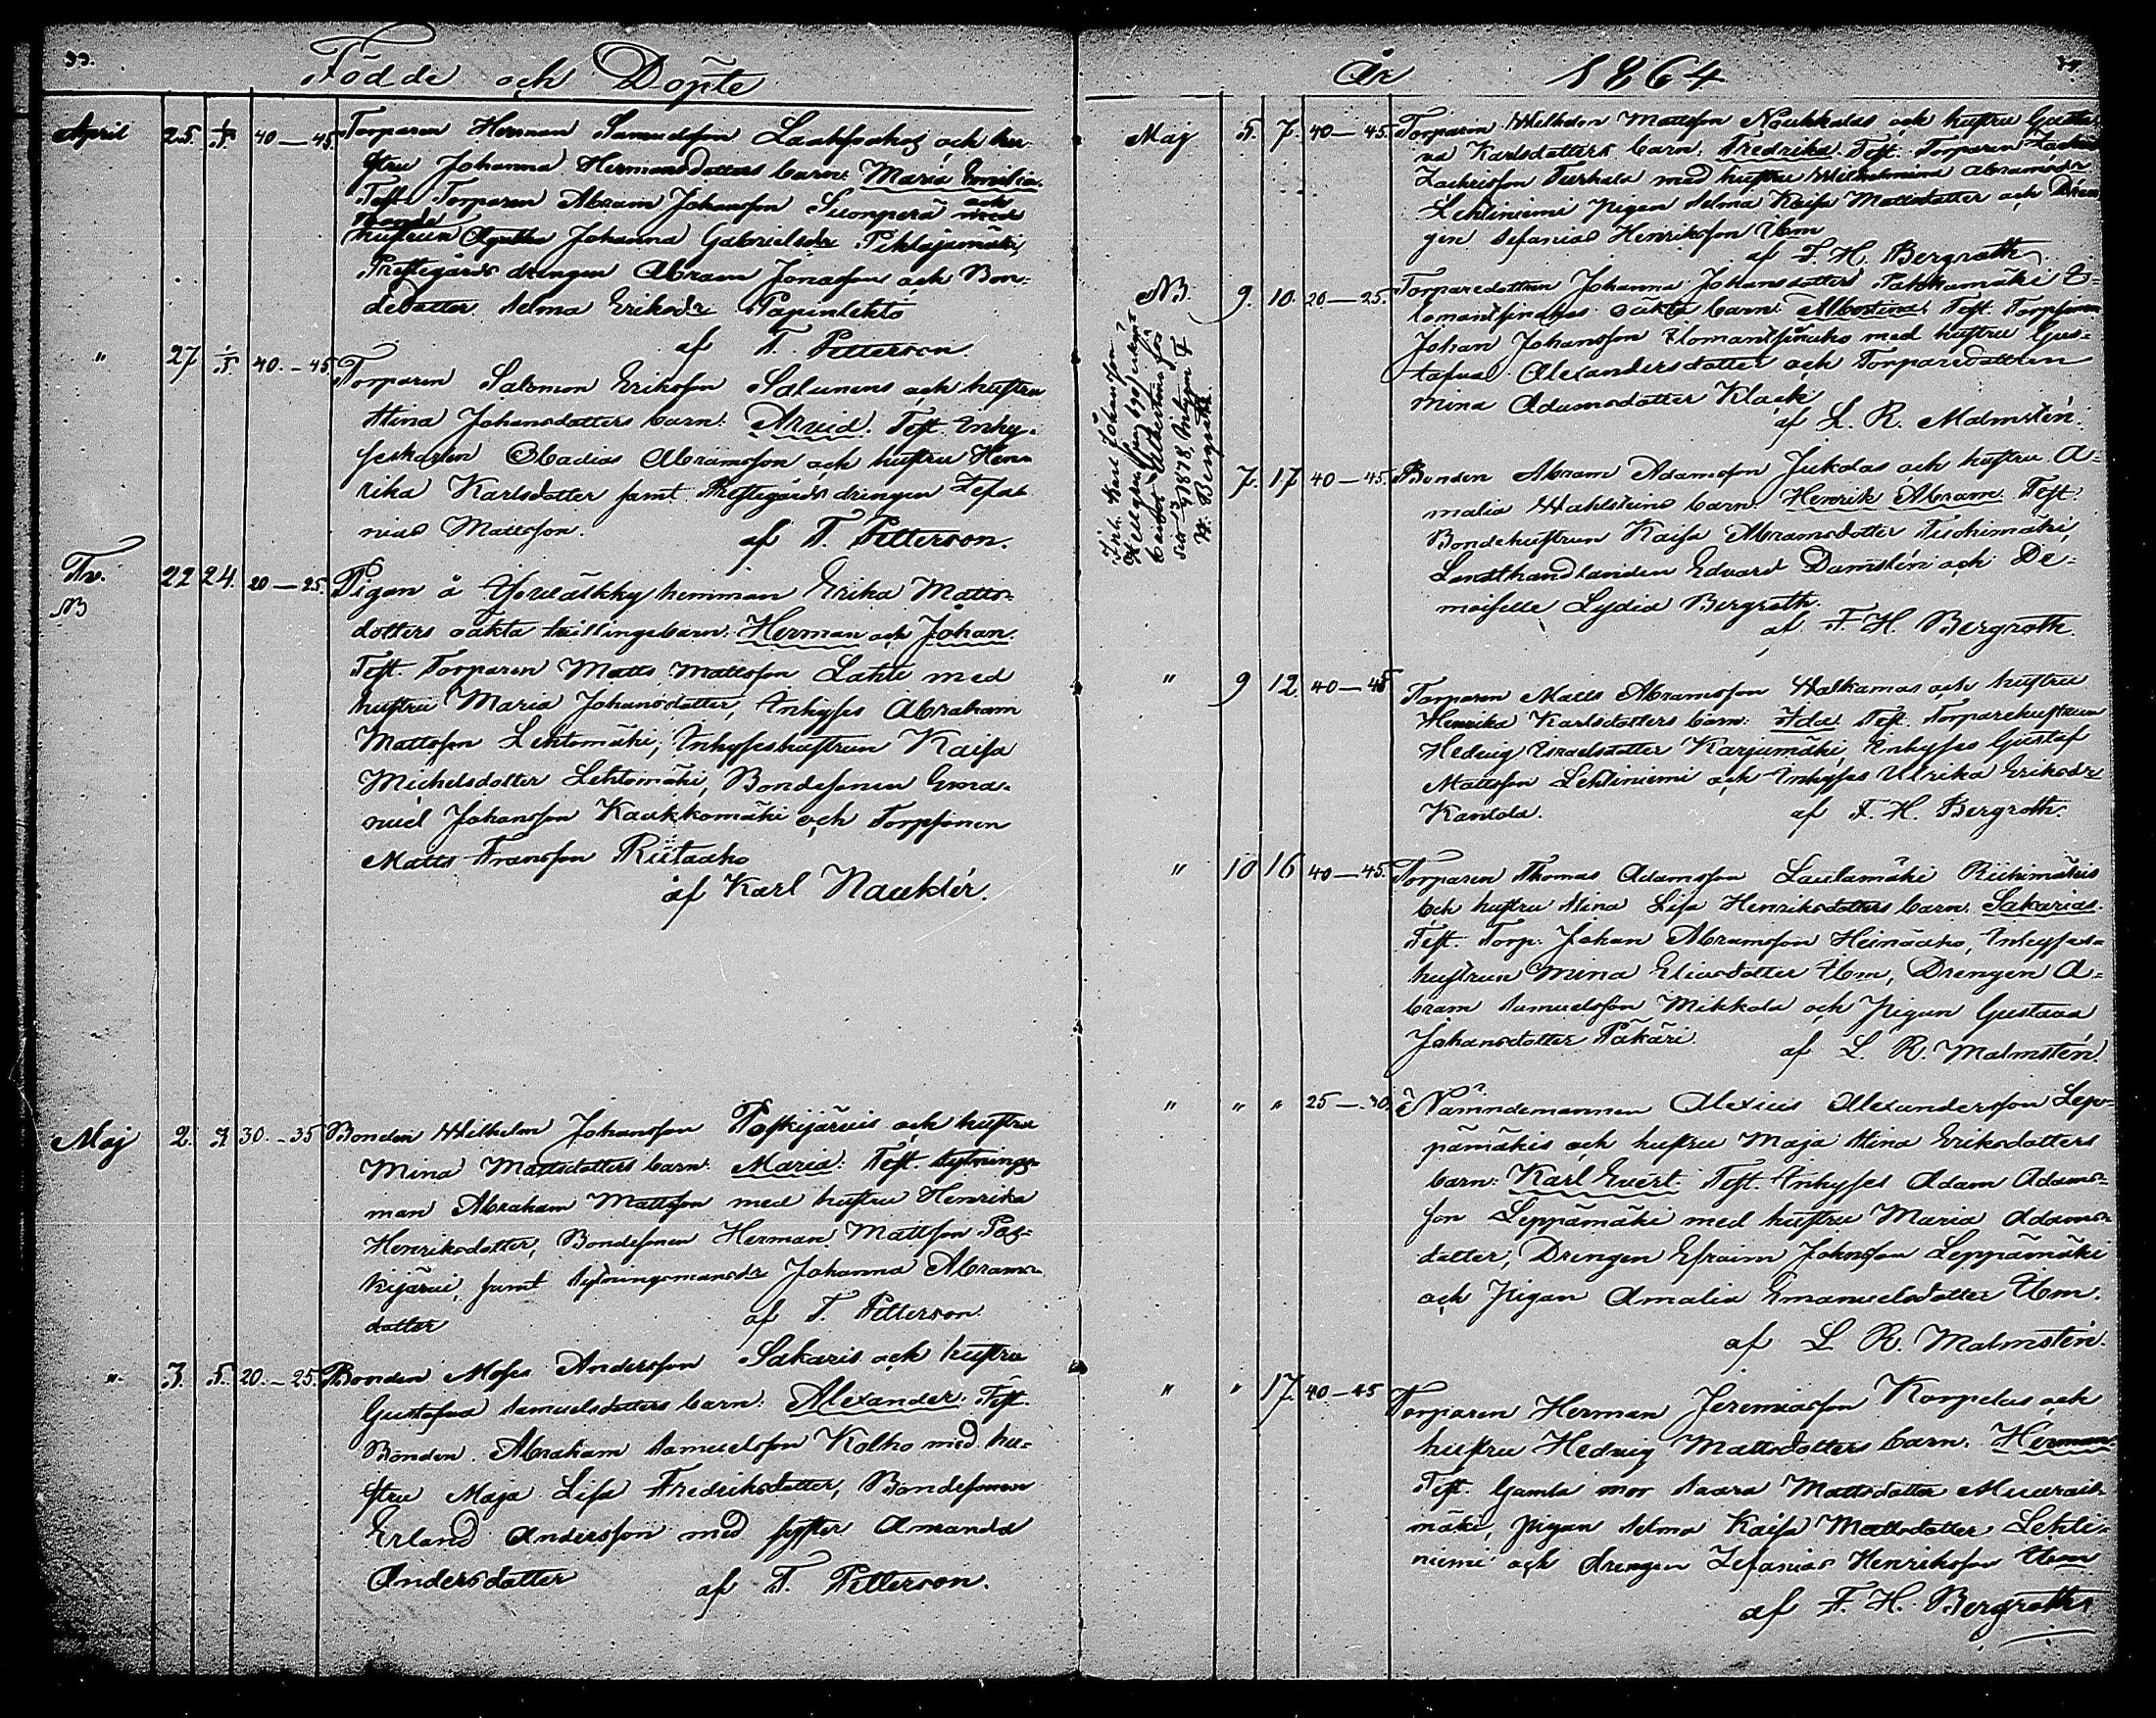 33.
Födde och Döpte
April 25. 1/5 40—45. Torparen Herman Samuelsson Laaksoahos och hu-
stru Johanna Hermansdotters barn: Maria Emilia.
Test. Torparen Abram Johansson Suonperä och
hustrun Agatha Johanna Gabrielsdr Pihlajamäki,
Prestegårds drengen Abram Jonasson och Bon-
dedotter Selma Eriksdr Papinlehto
af T. Petterson.
" 27 1/5 40.—45 Torparen Salomon Eriksson Salunens och hustru
Stina Johansdotters barn: Arvid. Test. Inhy-
seskarlen Obadias Abramsson och hustru Hen-
rika Karlsdotter samt Prestegårds drengen Zefa-
nias Mattsson.
af T. Petterson.
Tv. 22 24. 20—25. Pigan å hemman Erika Matts-
NB
dotters oäkta tvillingebarn: Herman och Johan.
Test. Torparen Matts Mattsson Lahti med
hustru Maria Johansdotter, Inhyses Abraham
Mattsson Lehtomäki, Inhyseshustrun Kaisa
Michelsdotter Lehtomäki, Bondesonen Ema-
nuel Johansson Kaukkomäki och Torpsonen
Matts Fransson Riitaaho
af Karl Nauklér.
Maj 2. 7 30.—35 Bonden Wilhelm Johansson Paskijärvis och hustru
Mina Mattsdotters barn: Maria: Test. Sytnings-
man Abraham Mattsson med hustru Henrika
Henriksdotter, Bondesonen Herman Mattsson Pas-
kijärvi, samt Sytningsmansdr Johanna Abrams-
dotter
af T. Petterson.
" 3. 5. 20.—25. Bonden Moses Andersson Sakaris och hustru
Gustafva Samuelsdotters barn: Alexander. Test.
Bonden Abraham Samuelsson Kolho med hu-
stru Maja Lisa Fredriksdotter, Bondesonen
Erland Andersson med syster Amanda
Andersdotter
af T. Petterson.
År 1864
Maj 5. 7. 40—45. Torparen Wilhelm Mattsson Noukkalas och hustru Gusta-
va Karlsdotters barn: Fredrika. Test. Torparen
Zachrisson med hustru Wilhelmina Abramsdr
Lehtiniemi Pigan Selma Kaisa Mattsdotter och Dren-
gen Sefanias Henriksson Ibm
af F. H. Bergroth.
NB. 9. 10. 20—25. Torparedottren Johanna Johansdotters Patokamäki
oäkta barn: Albertina. Test. Torpsonen
Johan Johansson med hustru Gus-
tafva Alexandersdotter och Torparedottren
Mina Adamsdotter Klack
af L. R. Malmstén.
Karl Johansson
1878,
Bergroth.
7. 17 40—45. Bonden Abram Adamsson Jukolas och hustru A-
malia Wahlsteins barn: Henrik Abram. Test.
Bondehustrun Kaisa Abramsdotter
Landthandlanden Edvard Damstén och De-
moiselle Lydia Bergroth.
af F. H. Bergroth.
" 9 12 40—45 Torparen Matts Abramsson Walkamas och hustru
Henrika Karlsdotters barn: Ida. Test. Torparehustrun
Hedvig Israelsdotter Karjumäki, Inhyses Gustaf
Mattsson Lehtiniemi och Inhyses Ulrika Eriksdr
Kantola.
af F. H. Bergroth.
" 10 16 40—45. Torparen Thomas Adamsson Lautamäki Riihimäkis
och hustru Stina Lisa Henriksdotters barn: Sakarias.
Test. Torp. Johan Abramsson Heinäaho, Inhyses-
hustrun Mina Eliasdotter Ibm, Drengen A-
bram Samuelsson Mikkola och Pigan Gustava
Johansdotter Päkäri.
af L. R. Malmstén.
" " " 25—30. Nämndemannen Alexius Alexandersson Lep-
pämäkis och hustru Maja Stina Eriksdotters
barn: Karl Evert. Test. Inhyses Adam Adams-
son Leppämäki med hustru Maria Adams-
dotter, Drengen Efraim Johnsson Leppämäki
och Pigan Amalia Emanuelsdotter Ibm.
af L. R. Malmstén.
" " 17. 40—45 Torparen Herman Jeremiasson Korpelas och
hustru Hedvig Mattsdotters barn: Herman.
Test. Gamla mor Saara Mattsdotter
mäki, Pigan Selma Kaisa Mattsdotter Lehti-
niemi och drengen Zefanias Henriksson Ibm
af F. H. Bergroth.